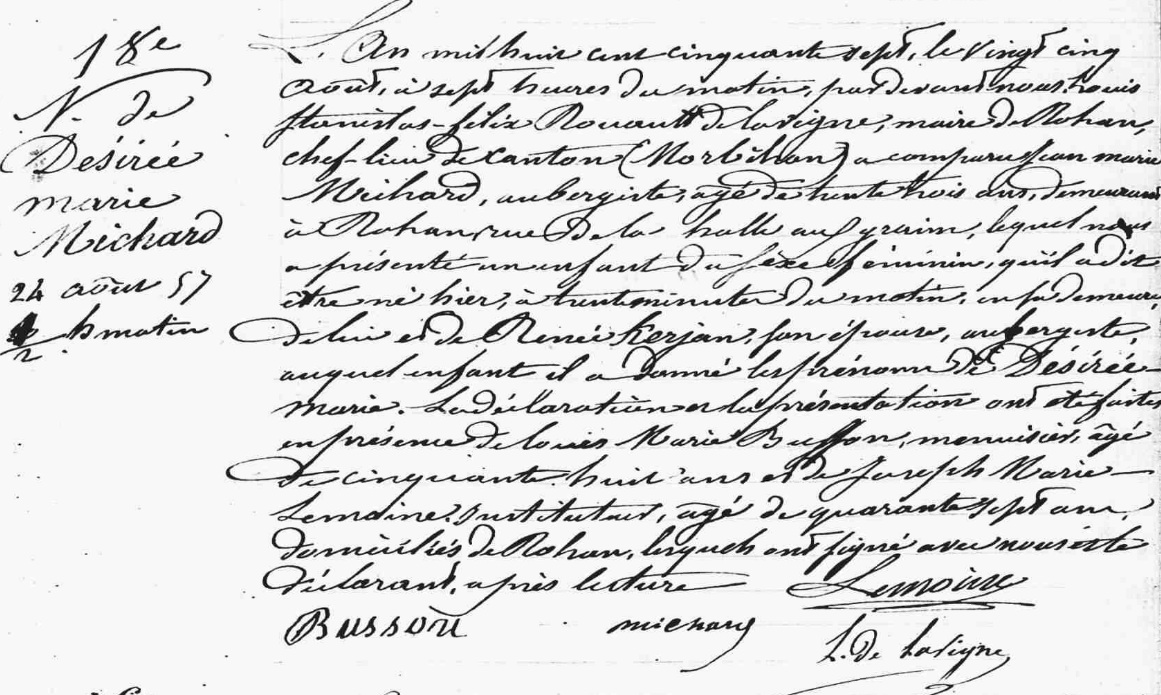 18e
N. de
Désirée
marie
Michard
24 août 57
1/2 h matin
L'An mil huit cent cinquante sept, le vingt cinq
août, à sept heures du matin, pardevant nous Louis
Stanislas-félix Rouault de lavigne, maire de Rohan,
chef-lieu de canton (Morbihan) a comparu Jean marie
Michard, aubergiste, agé de trente trois ans, demeurant
à Rohan, rue De la halle aux grains, lequel nous
a présenté un enfant du sexe féminin, qu'il a dit
être né hier, à trente minutes du matin, en sa demeure,
de lui et de Renée Kerjan, son épouse, aubergiste,
auquel enfant il a donné les prénoms de Désirée
marie. La déclaration et la présentation ont été faites
en présence de louis Marie Busson, menuisier, âgé
de cinquante huit ans et de Joseph Marie
Lemoine, instituteur, agé de quarante sept ans,
domiciliés de Rohan, lesquels ont signé avec nous et le
déclarant, après lecture
Lemoine
Busson
michard
L. de Lavigne